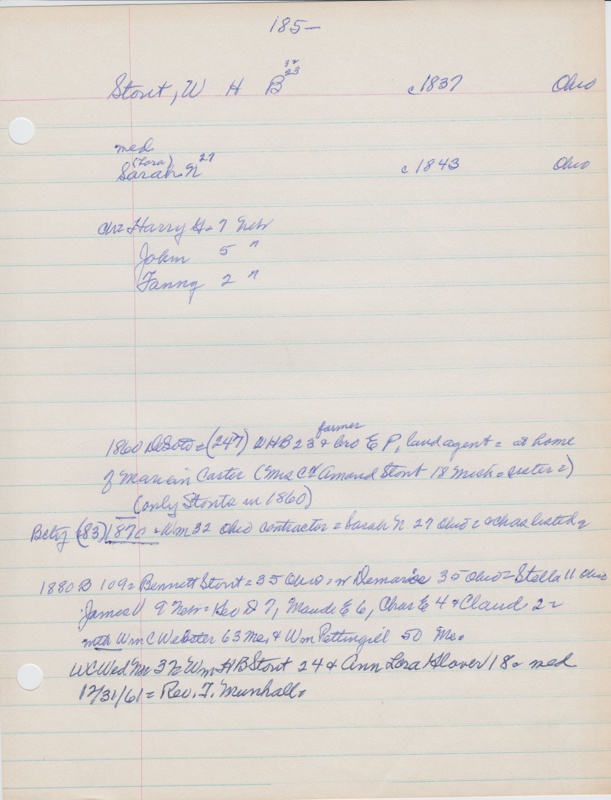 185-
Stout, W H B 32 23 c1837 Ohio
med
(Lora)
Sarah N 27 c 1843 Ohio
ch= Harry G. 7 Nebr
John 5 "
Fanny 2 "
farmer
1860 DeSoto = (247) WHB 23 & bro E P, land agent = at home
of Marvin Carter (Mrs C & Amand Stout 18 Mich = sister =)
(only Stouts in 1860)
(83) 1870 = Wm 32 Ohio contractor = Sarah N 27 Ohio = & ch as listed
1880 B 109 = Bennett Stout = 35 Ohio = w Demarise 35 Ohio = Stella 11 Ohio
James 9 Nebr = Geo D 7, Maude E 6, Chas E 4 & Claud 2 =
with Wm C Webster 63 Me, & Wm Pettingiel 50 Me.
WC Wed Nr 32 = Wm H B Stout 24 & Ann Lora Glover 18 = med
12/31/61 = Rev. T. Munhall.